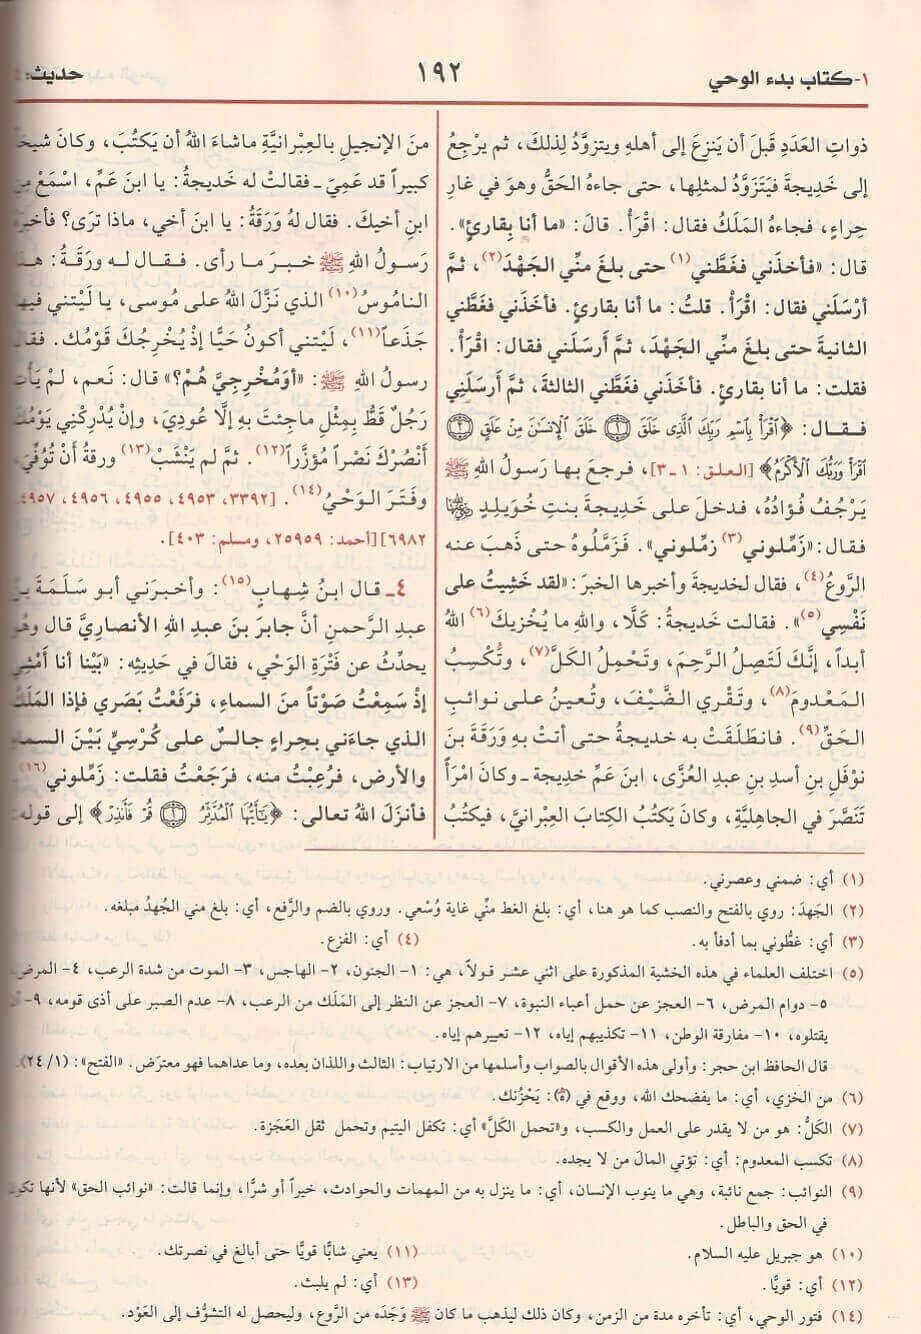 ١- كتاب بدء الوحي
١٩٢
حديث:
ذواتِ العَدَدِ قَبلَ أن يَنزِعَ إلى أهلهِ ويتزوَّدُ لِذلكَ، ثم يرْجِعُ
إلى خَدِيجةَ فيَتَزَوَّدُ لمثلِها، حتى جاءهُ الحَقُّ وهوَ في غارِ
حِراءٍ، فجاءهُ المَلَكُ فقال: اقْرَأْ. قالَ: «ما أنا بِقارئٍ».
قال: «فأخذَني فغَطَّني(١) حتى بلغَ منِّي الجَهْدَ(٢)، ثمَّ
أرْسَلَني فقال: اقْرَأْ. قلتُ: ما أنا بقارئٍ. فأخَذَني فغَطَّني
الثانيةَ حتى بلغَ منِّي الجَهْدَ، ثمَّ أرسَلَني فقال: اقْرَأْ.
فقلت: ما أنا بقارئٍ. فأخذَني فغَطَّني الثالثةَ، ثمَّ أرسَلَني
فقال: ﴿اقْرَأْ بِاسْمِ رَبِّكَ الَّذِي خَلَقَ ۝١ خَلَقَ الْإِنسَانَ مِنْ عَلَقٍ ۝٢
اقْرَأْ وَرَبُّكَ الْأَكْرَمُ﴾ [العلق: ١-٣]، فرجعَ بها رَسولُ اللهِ ﷺ
يَرْجُفُ فؤادُهُ، فدخلَ على خَديجةَ بنتِ خُوَيلِدٍ رضي الله عنها
فقال: «زَمِّلوني(٣) زَمِّلوني». فزَمَّلوهُ حتى ذَهبَ عنه
الرَّوعُ(٤)، فقال لخديجةَ وأخبرها الخبرَ: «لقد خَشِيتُ على
نَفْسِي(٥)». فقالت خَديجةُ: كَلَّا، واللهِ ما يُخْزِيكَ(٦) اللهُ
أبداً، إنَّكَ لَتَصِلُ الرَّحِمَ، وتَحْمِلُ الكَلَّ(٧)، وتُكْسِبُ
المَعْدومَ(٨)، وتَقْري الضَّيْفَ، وتُعينُ على نوائبِ
الحَقِّ(٩). فانطَلَقَتْ به خديجةُ حتى أتتْ بهِ وَرَقةَ بنَ
نوْفَلِ بنِ أسدِ بنِ عبدِ العُزَّى، ابنَ عَمِّ خديجةَ ـ وكانَ امْرَأً
تَنَصَّرَ في الجاهليَّةِ، وكان يَكتُبُ الكِتابَ العِبرانيَّ، فيَكتُبُ
منَ الإنجيلِ بالعِبْرانيَّةِ ماشاءَ اللهُ أن يَكتُبَ، وكانَ شيخاً
كبيراً قد عَمِيَ ـ فقالتْ له خَديجةُ: يا ابنَ عَمِّ، اسْمَعْ مِنِ
ابنِ أخيكَ. فقال لهُ وَرَقةُ: يا ابنَ أخي، ماذا ترَى؟ فأخبرَهُ
رَسولُ اللهِ ﷺ خبرَ ما رأى. فقال له ورَقةُ: هذا
الناموسُ(١٠) الذي نَزَّلَ اللهُ على مُوسى، يا لَيْتَني فيها
جَذَعاً(١١)، لَيْتَني أكونُ حَيًّا إذْ يُخْرِجُكَ قَوْمُك. فقال
رسولُ اللهِ ﷺ: «أوَمُخْرِجِيَّ هُمْ؟» قال: نَعم، لمْ يَأْتِ
رَجُلٌ قَطُّ بمِثْلِ ماجِئتَ بهِ إلَّا عُودِيَ، وإنْ يُدْرِكْني يَوْمُكَ
أنْصُرْكَ نَصْراً مُؤزَّراً(١٢). ثمَّ لم يَنْشَبْ(١٣) ورقةُ أنْ تُوُفِّيَ،
وفَتَرَ الوَحْيُ(١٤). [٣٣٩٢، ٤٩٥٣، ٤٩٥٥، ٤٩٥٦، ٤٩٥٧،
٦٩٨٢] [أحمد: ٢٥٩٥٩، ومسلم: ٤٠٣].
٤ـ قال ابنُ شِهابٍ(١٥): وأخبرَني أبو سَلَمَةَ بنُ
عبدِ الرَّحمنِ أنَّ جابرَ بنَ عبدِ اللهِ الأنصاريَّ قال وهُوَ
يحدِّثُ عن فَتْرةِ الوَحْي، فقال في حَديثِهِ: «بَيْنا أنا أمْشِي
إذْ سَمِعْتُ صَوْتاً منَ السماءِ، فرَفَعْتُ بَصَري فإذا المَلَكُ
الذي جاءَني بحِراءٍ جالسٌ على كُرْسِيٍّ بَيْنَ السماءِ
والأرضِ، فرُعِبْتُ منه، فرَجَعْتُ فقلت: زَمِّلوني(١٦).
فأنزلَ اللهُ تعالى: ﴿يَا أَيُّهَا الْمُدَّثِّرُ ۝١ قُمْ فَأَنذِرْ﴾ إلى قولِه:
(١) أي: ضمني وعصرني.
(٢) الجَهدَ: روي بالفتح والنصب كما هو هنا، أي: بلغ الغط منِّي غاية وُسْعي. وروي بالضم والرَّفع، أي: بلغ مني الجُهدُ مبلغه.
(٣) أي: غطُّوني بما أدفأ به.
(٤) أي: الفزع.
(٥) اختلف العلماء في هذه الخشية المذكورة على اثني عشر قولاً، هي: ١- الجنون، ٢- الهاجس، ٣- الموت من شدة الرعب، ٤- المرض،
٥- دوام المرض، ٦- العجز عن حمل أعباء النبوة، ٧- العجز عن النظر إلى المَلَك من الرعب، ٨- عدم الصبر على أذى قومه، ٩- أن
يقتلوه، ١٠- مفارقة الوطن، ١١- تكذيبهم إياه، ١٢- تعييرهم إياه.
قال الحافظ ابن حجر: وأولى هذه الأقوال بالصواب وأسلمها من الارتياب: الثالث واللذان بعده، وما عداهما فهو معترَض. «الفتح»: (١/ ٢٤).
(٦) من الخزي، أي: ما يفضحك الله، ووقع في (ه): يَحْزُنك.
(٧) الكَلُّ: هو من لا يقدر على العمل والكسب، و«تحمل الكَلَّ» أي: تكفل اليتيم وتحمل ثقل العَجَزة.
(٨) تكسب المعدوم: أي: تؤتي المالَ من لا يجده.
(٩) النوائب: جمع نائبة، وهي ما ينوب الإنسان، أي: ما ينزل به من المهمات والحوادث، خيراً أو شرًّا، وإنما قالت: «نوائب الحق» لأنها تكون
في الحق والباطل.
(١٠) هو جبريل عليه السلام.
(١١) يعني شابًّا قويًّا حتى أبالغ في نصرتك.
(١٢) أي: قويًّا.
(١٣) أي: لم يلبث.
(١٤) فتور الوحي، أي: تأخره مدة من الزمن، وكان ذلك ليذهب ما كان ﷺ وَجَدَه من الرَّوع، وليحصل له التشوُّف إلى العَوْد.